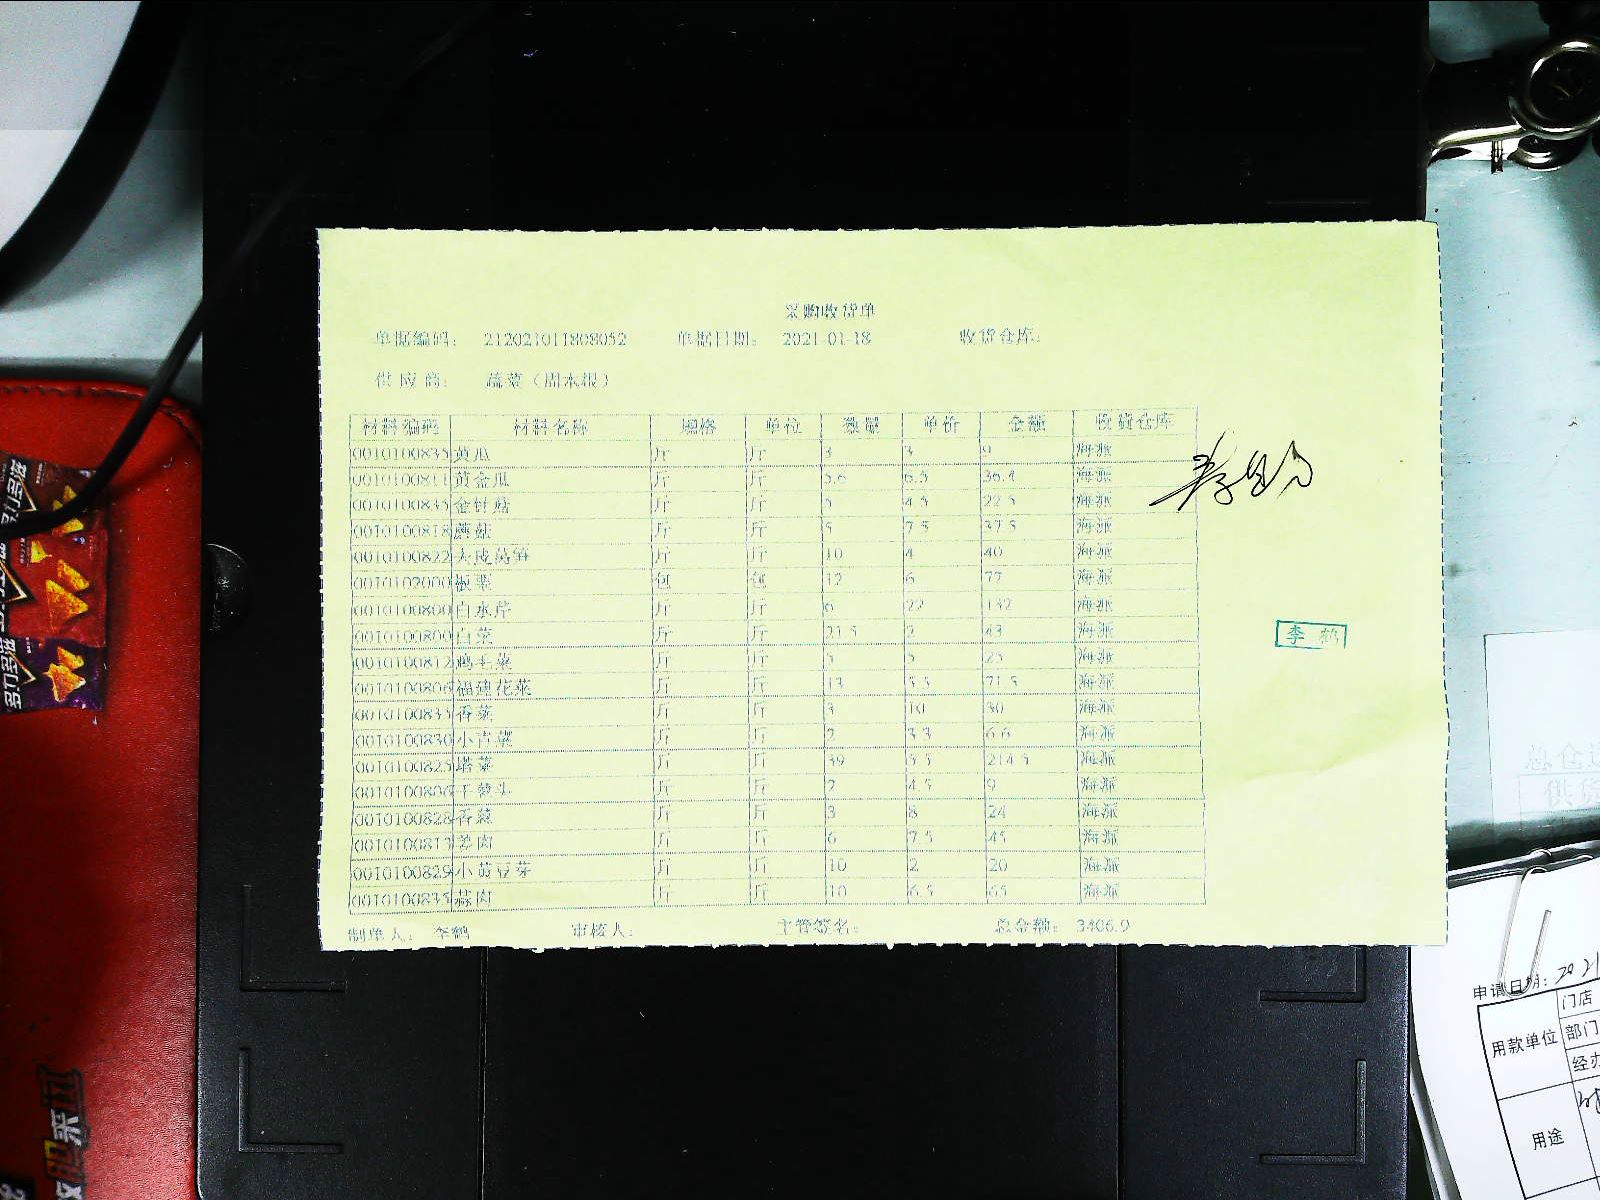 采购收货单
单据编码: 212021011808052 单据日期: 2021-01-18 收货仓库:
供应商: 蔬菜(周本根)
材料编码 材料名称 规格 单位 数量 单价 金额 收货仓库
0010100835 黄瓜 斤 斤 3 3 9 海派
0010100811 黄金瓜 斤 斤 5.6 6.5 36.4 海派
0010100835 金针菇 斤 斤 5 4.5 22.5 海派
0010100818 蘑菇 斤 斤 5 7.5 37.5 海派
0010100822 大皮莴笋 斤 斤 10 4 40 海派
0010102000 板栗 包 包 12 6 72 海派
0010100800 白水芹 斤 斤 6 22 132 海派
0010100800 白菜 斤 斤 21.5 2 43 海派
0010100812 鸡毛菜 斤 斤 5 5 25 海派
0010100806 福建花菜 斤 斤 13 5.5 71.5 海派
0010100835 香菜 斤 斤 3 10 30 海派
0010100830 小青菜 斤 斤 2 3.3 6.6 海派
0010100825 塔菜 斤 斤 39 5.5 214.5 海派
0010100806 干葱头 斤 斤 2 4.5 9 海派
0010100828 香葱 斤 斤 3 8 24 海派
0010100813 姜肉 斤 斤 6 7.5 45 海派
0010100829 小黄豆芽 斤 斤 10 2 20 海派
0010100835 蒜肉 斤 斤 10 6.5 65 海派
制单人: 李鹤 审核人: 主管签名: 总金额: 3406.9
李鹤
总仓
供货
申请日期: 2021
用款单位 门店
部门
经办
用途
多力多滋
多力多滋